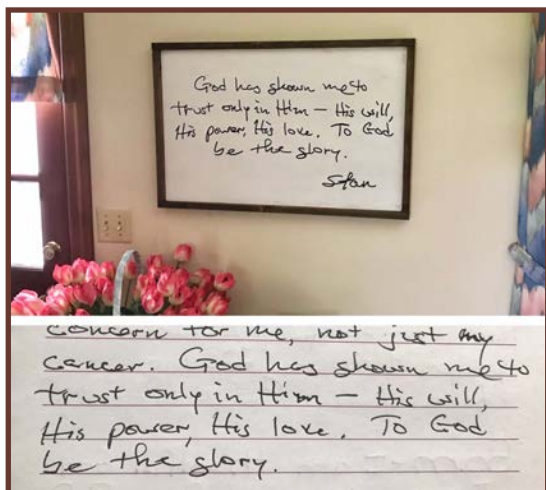 God has shown me to
trust only in Him — His will,
His power, His love. To God
be the glory.
Stan
concern for me, not just my
cancer. God has shown me to
trust only in Him — His will,
His power, His love. To God
be the glory.